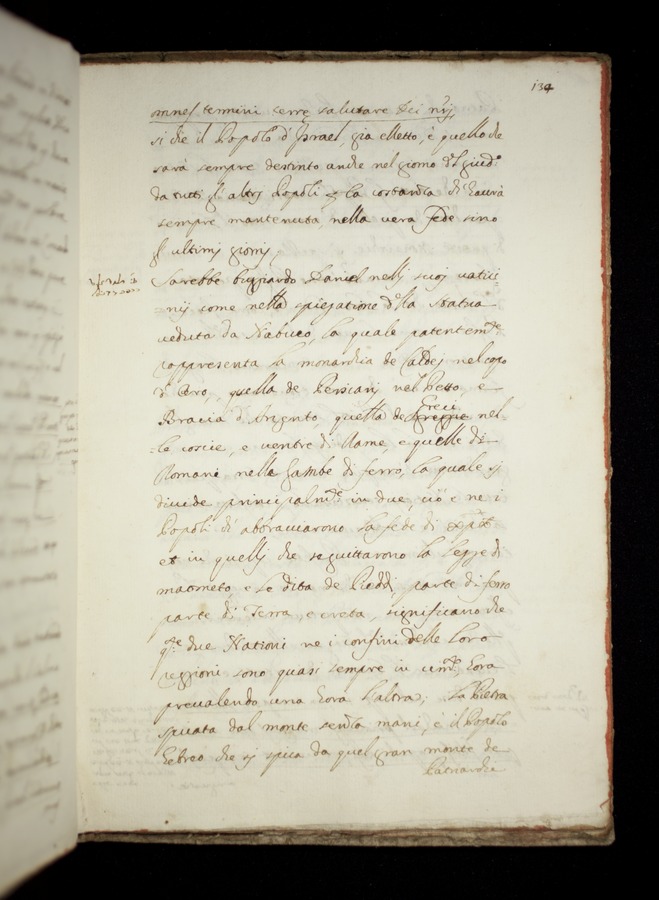 134
omnes termini terrę salutare Dei nrj,
si che il Popolo d'Israel, gia elletto, è quello che
sarà sempre destinto anche nel giorno d'l giud.o
da tutti gl'altri Popoli p la costanza ch'haurà
sempre mantenuta, nella vera fede sino
gl'ultimi giorni,
Sarebbe buggiardo Daniel nelli suoj vatici
nij come nella spiegatione d'lla statua
veduta da Nabuco, la quale patentem.te
rappresenta la monarchia de Caldej nel capo
di Oro, quella de Persianj nel Petto, e
Bracia d'Argento, quella de Greci nel-
le coscie, e ventre di Rame, e quelle di
Romani nelle Gambe di ferro, la quale si
diuide principalm.te in due, ciò è ne i
Popoli ch'abbracciarono la fede di
et in quelli che seguittarono la legge di
maometo, e le dita de Piedi, parte di ferro
parte di Terra, e creta, significano che
q.te due Nationi ne i confini delle loro
reggioni sono quasi sempre in hora
prevalendo una hora l'altra; la Pietra
spicata dal monte senza mani, è il Popolo
hebreo che si spica da quel gran monte de
Patriarchi